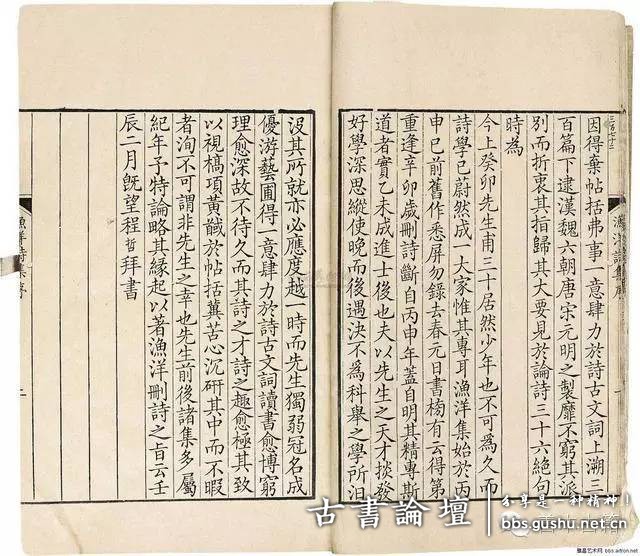 因得棄帖括弗事一意肆力於詩古文詞上溯三
百篇下逮漢魏六朝唐宋元明之製靡不窮其派
別而折衷其指歸其大要見於論詩三十六絶句
時為
今上癸卯先生甫三十居然少年也不可為久而
詩學已蔚然成一大家惟其專耳漁洋集始於丙
申已前舊作悉屏勿錄去春元日書牓有云得第
重逢辛卯歲刪詩斷自丙申年蓋自明其精專斯
道者實乙未成進士後也夫以先生之天才掞發
好學深思縱使晚而後遇決不為科舉之學所汩
漁洋詩集序
沒其所就亦必應度越一時而先生獨弱冠名成
優游藝圃得一意肆力於詩古文詞讀書愈博窮
理愈深故不待久而其詩之才詩之趣愈極其致
以視槁項黃馘於帖括冀苦心沉研其中而不暇
者洵不可謂非先生之幸也先生前後諸集多屬
紀年予特論略其緣起以著漁洋刪詩之旨云壬
辰二月旣望程哲拜書
漁洋詩集序
二
古書論壇
分享是一种精神!
bbs.gushu.net.cn
善本古籍
雅昌艺术网 bbs.artron.net